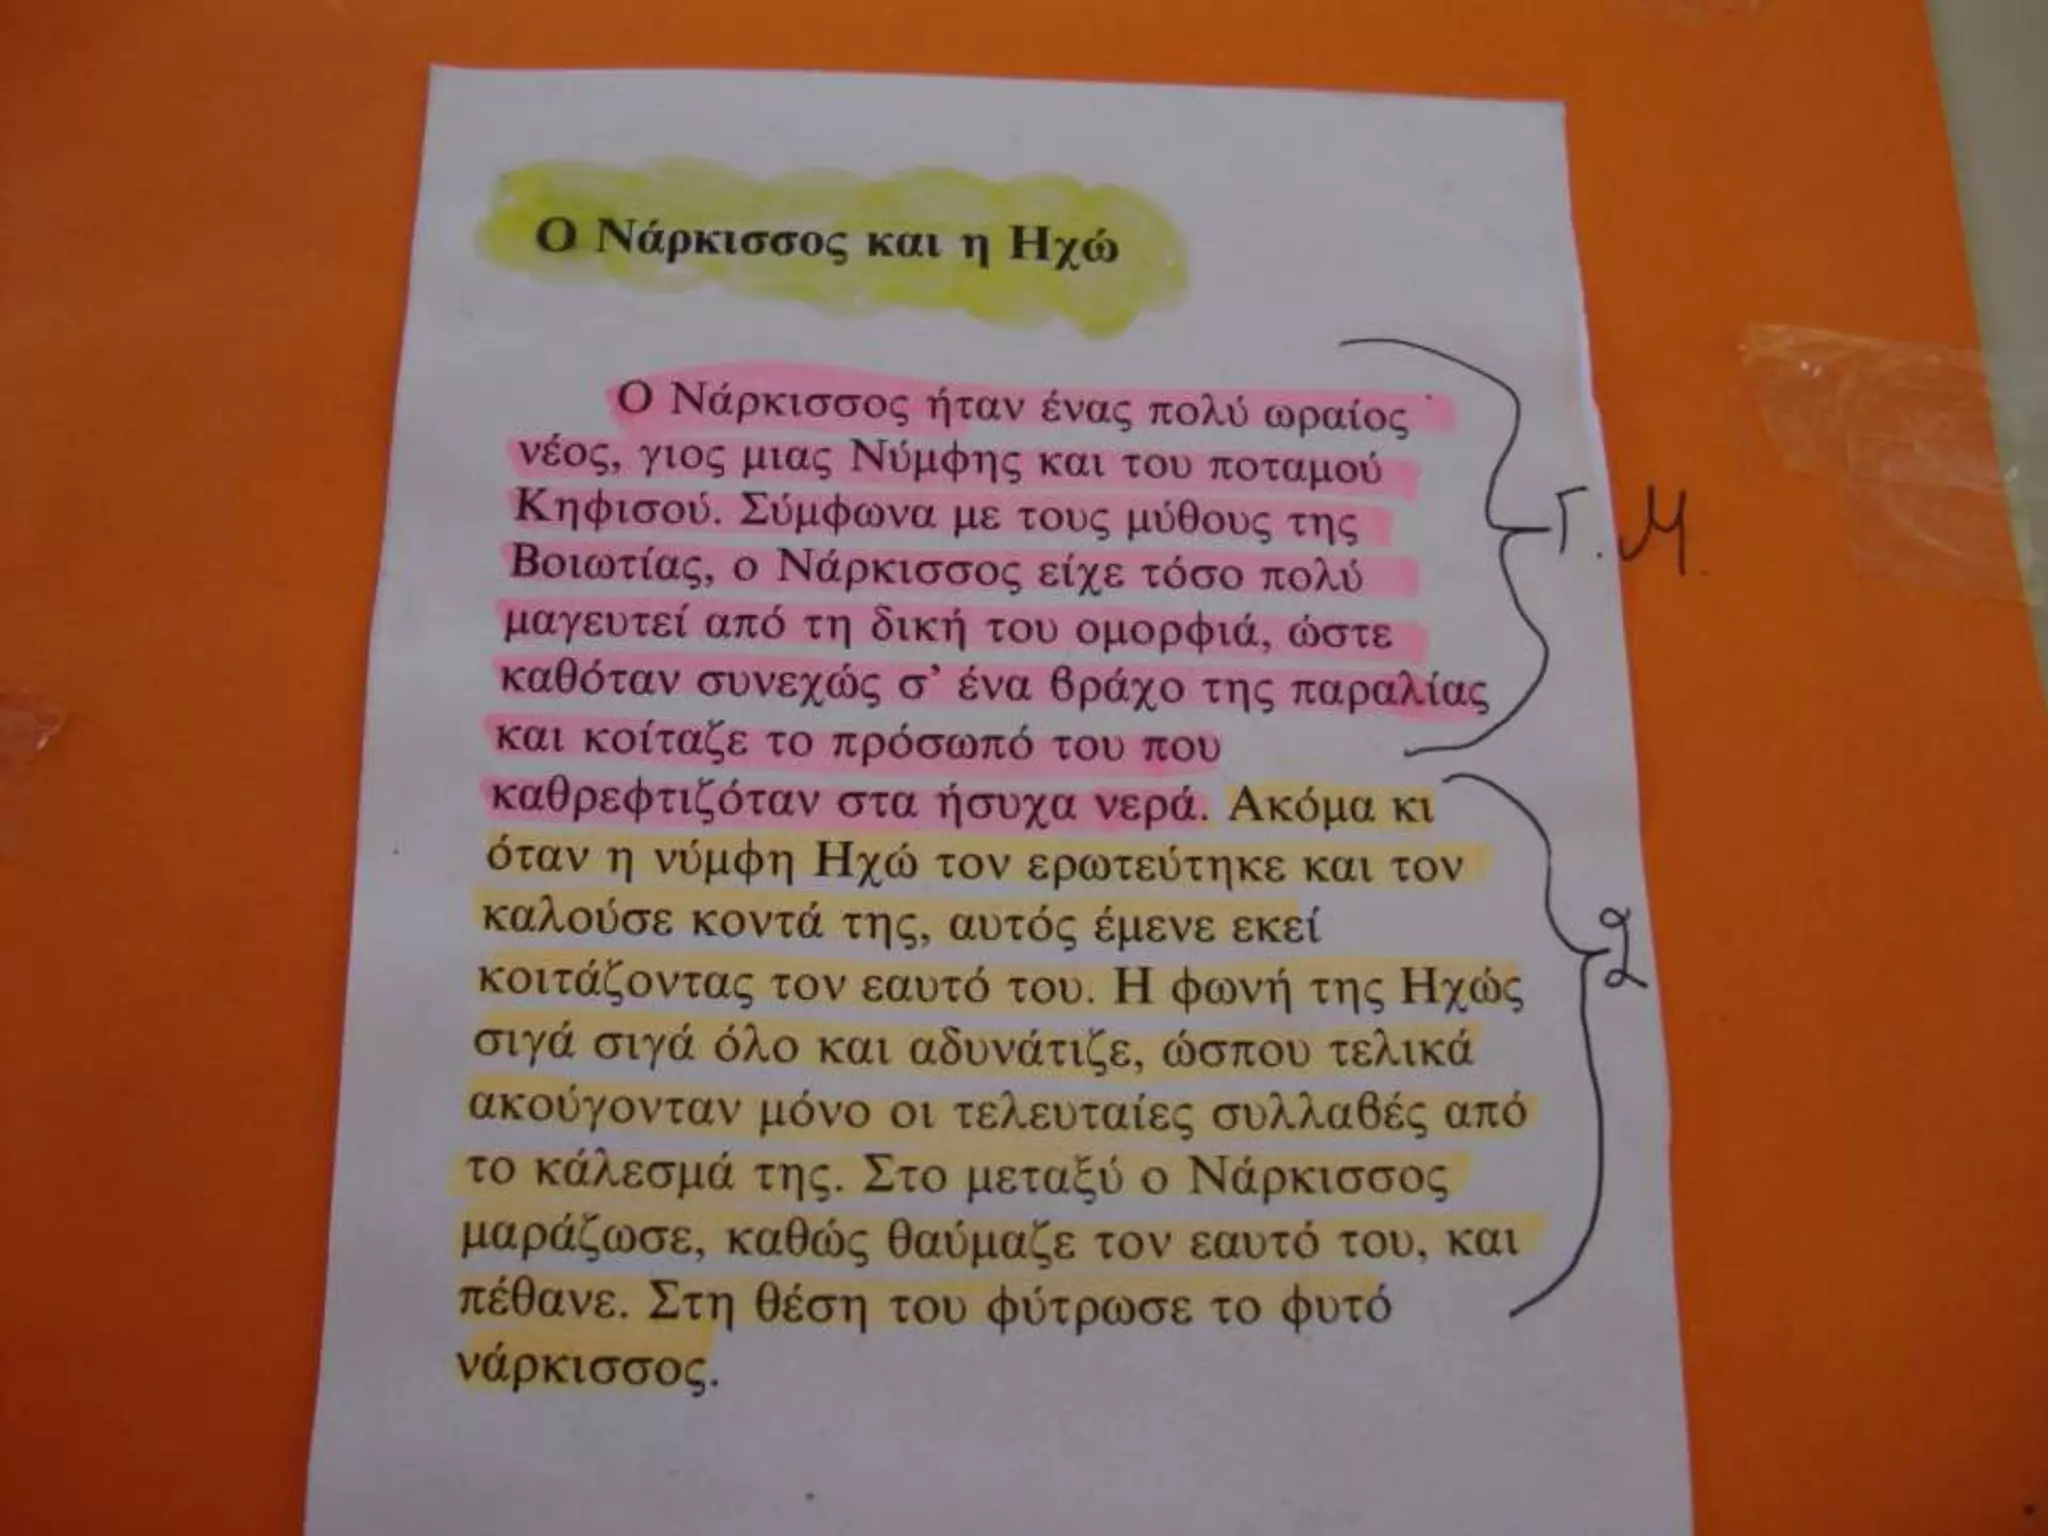 Ο Νάρκισσος και η Ηχώ
Ο Νάρκισσος ήταν ένας πολύ ωραίος
νέος, γιος μιας Νύμφης και του ποταμού
Κηφισού. Σύμφωνα με τους μύθους της
Βοιωτίας, ο Νάρκισσος είχε τόσο πολύ
μαγευτεί από τη δική του ομορφιά, ώστε
καθόταν συνεχώς σ' ένα βράχο της παραλίας
και κοίταζε το πρόσωπό του που
καθρεφτιζόταν στα ήσυχα νερά. Ακόμα κι
όταν η νύμφη Ηχώ τον ερωτεύτηκε και τον
καλούσε κοντά της, αυτός έμενε εκεί
κοιτάζοντας τον εαυτό του. Η φωνή της Ηχώς
σιγά σιγά όλο και αδυνάτιζε, ώσπου τελικά
ακούγονταν μόνο οι τελευταίες συλλαβές από
το κάλεσμά της. Στο μεταξύ ο Νάρκισσος
μαράζωσε, καθώς θαύμαζε τον εαυτό του, και
πέθανε. Στη θέση του φύτρωσε το φυτό
νάρκισσος.
Γ.Μ.